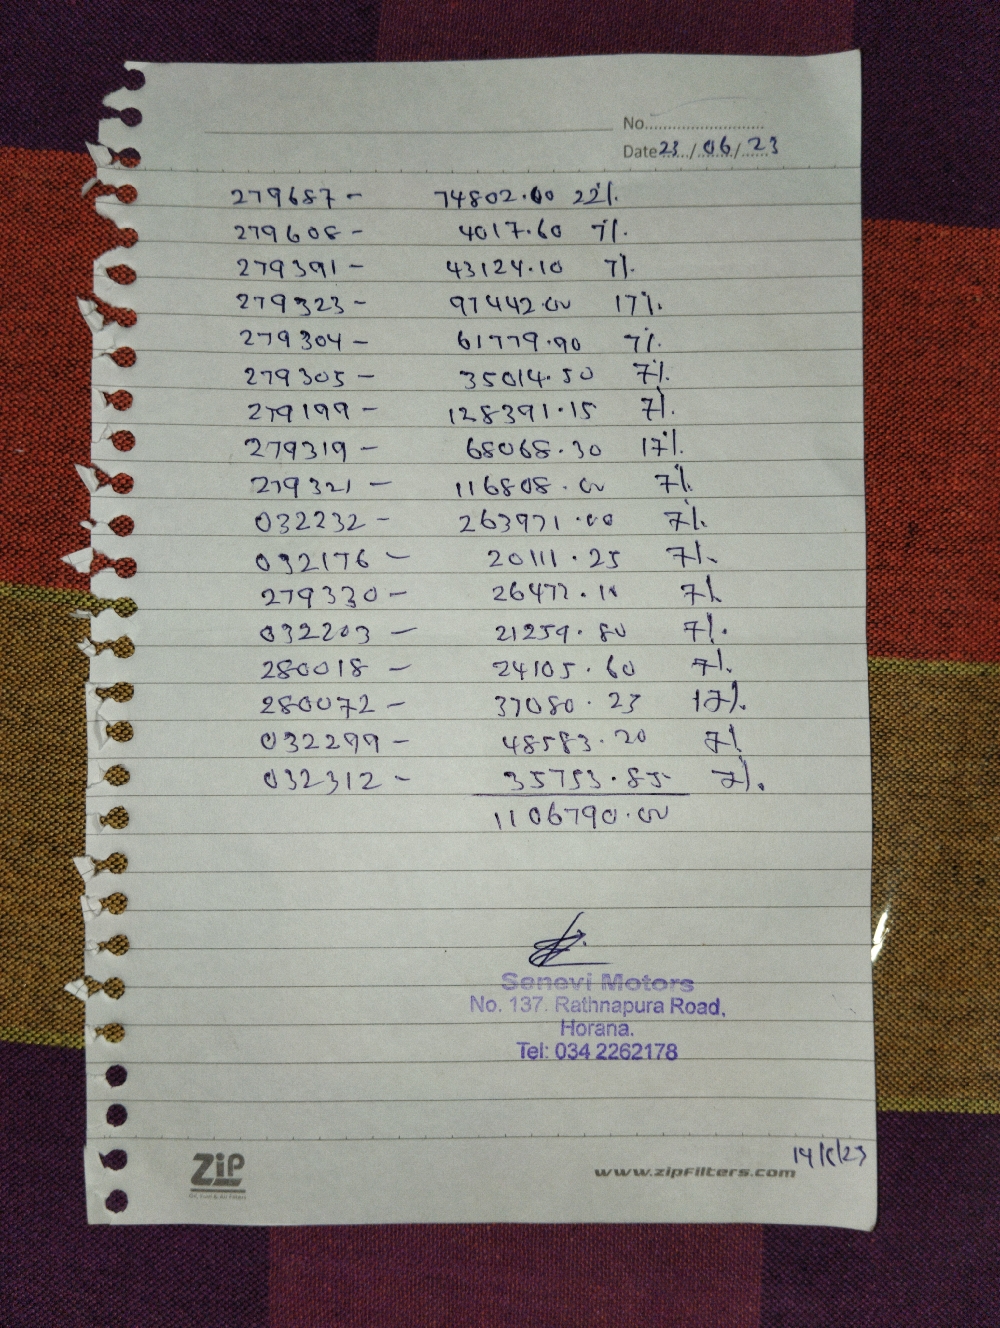 No...........................
Date 23.../ 06 / 23
279687 - 74802.60 22%.
279608 - 4017.60 7%.
279391 - 43124.10 7%.
279323 - 97442.00 17%.
279304 - 61779.90 7%.
279305 - 35014.50 7%.
279199 - 128391.15 7%.
279319 - 68068.30 17%.
279321 - 116808.00 7%.
032232 - 263971.00 7%.
032176 - 20111.25 7%.
279330 - 7%
032203 - 21259.80 7%.
280018 - 24105.60 7%.
280072 - 37080.23 17%.
032299 - 48583.20 7%
032312 - 35753.85 7%.
1106790.00
Senevi Motors
No. 137. Rathnapura Road,
Horana.
Tel: 034 2262178
ZiP
www.zipfilters.com